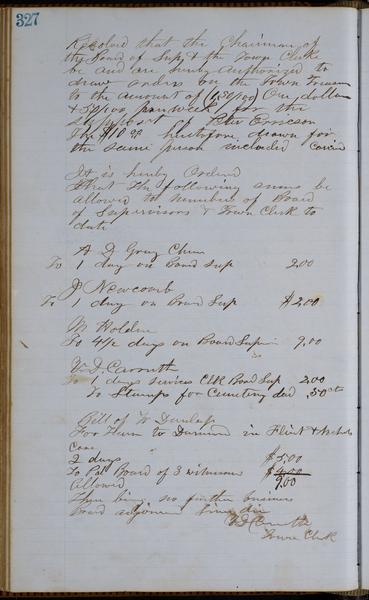 327
Resolved that the Chairman of
the Board of Sup & the Town Clerk
be and are hereby authorized to
draw orders on the Town Treasurer
to the amount of (1.50/100) One dollar
& 50/100 per week for the
support of Peter Ericson
The $10.00 heretofore drawn for
the same person included Carried
It is hereby Ordered
that the following sums be
allowed to members of Board
of Supervisors & Town Clerk to
date
A D Gray Chm
To 1 day on Board Sup 2.00
J Newcomb
To 1 day on Board Sup $2.00
M Holden
To 4 1/2 days on Board Sup 9.00
W. D. Carruth
To 1 days services Clk Board Sup 2.00
To Stamps for Cemetery deed .50 cts
Bill of W Dunlap
For in Flint & Nichols
Case
2 days $5.00
To Board of 3 witnesses $4.00
Allowed 9.00
There being no further business
board adjourned sine die
W D Carruth
Town Clerk